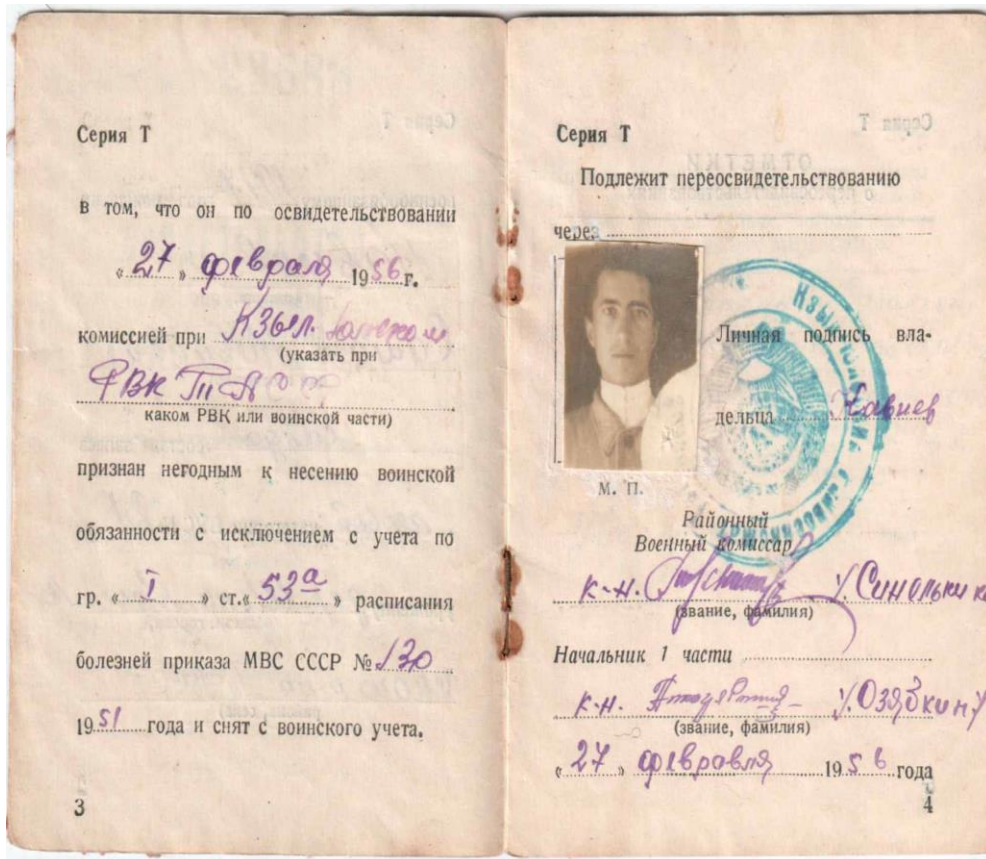 Серия Т
в том, что он по освидетельствовании
« 27 » февраля 1956 г.
комиссией при Кзыл.
(указать при
РВК ТАССР
каком РВК или воинской части)
признан негодным к несению воинской
обязанности с исключением с учета по
гр. « I » ст.« 53а » расписания
болезней приказа МВС СССР № 130
1951 года и снят с воинского учета.
3
Серия Т
Подлежит переосвидетельствованию
через
Личная подпись вла-
дельца
М. П.
Районный
Военный комиссар
к-н. /Синельник
(звание, фамилия)
Начальник 1 части
к-н. /Озябкин/
(звание, фамилия)
« 27 » февраля 1956 года
4